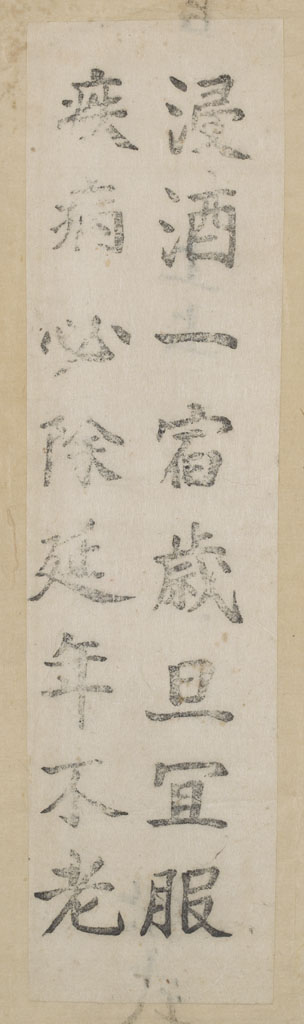 浸酒一宿歳旦冝服
疾病必除延年不老